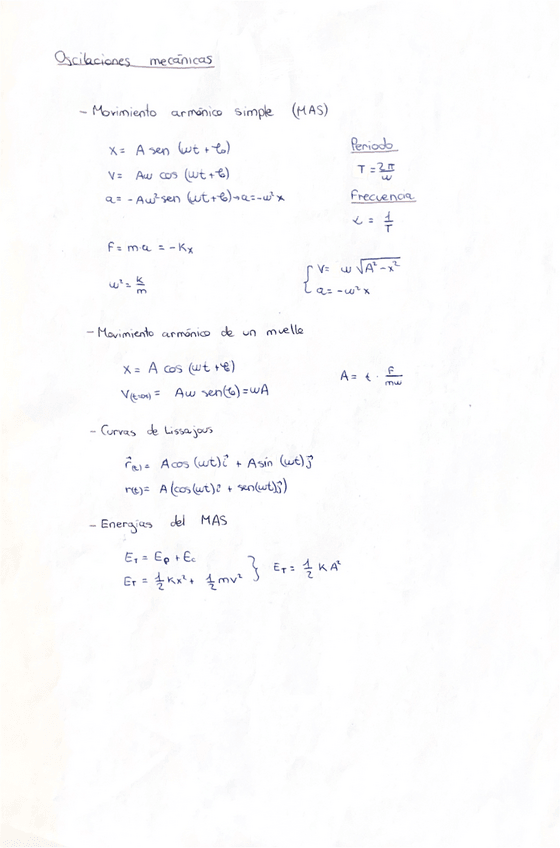 Oscilaciones mecánicas
- Movimiento armónico simple (MAS)
x = A sen (ωt + φ₀)
Periodo
v = Aω cos (ωt + φ₀)
T = 2π/ω
a = -Aω² sen (ωt + φ₀) → a = -ω²x
Frecuencia
= 1/T
F = m·a = -Kx
v = ω √A² - x²
ω² = k/m
a = -ω²x
- Movimiento armónico de un muelle
x = A cos (ωt + φ₀)
A = t · F/mω
Aω sen(φ₀) = ωA
- Curvas de Lissajous
r⃗(t) = A cos (ωt) i⃗ + A sin (ωt) j⃗
r(t) = A (cos(ωt) i⃗ + sen(ωt) j⃗)
- Energías del MAS
E_T = E_p + E_c
E_T = 1/2 Kx² + 1/2 mv² } E_T = 1/2 K A²